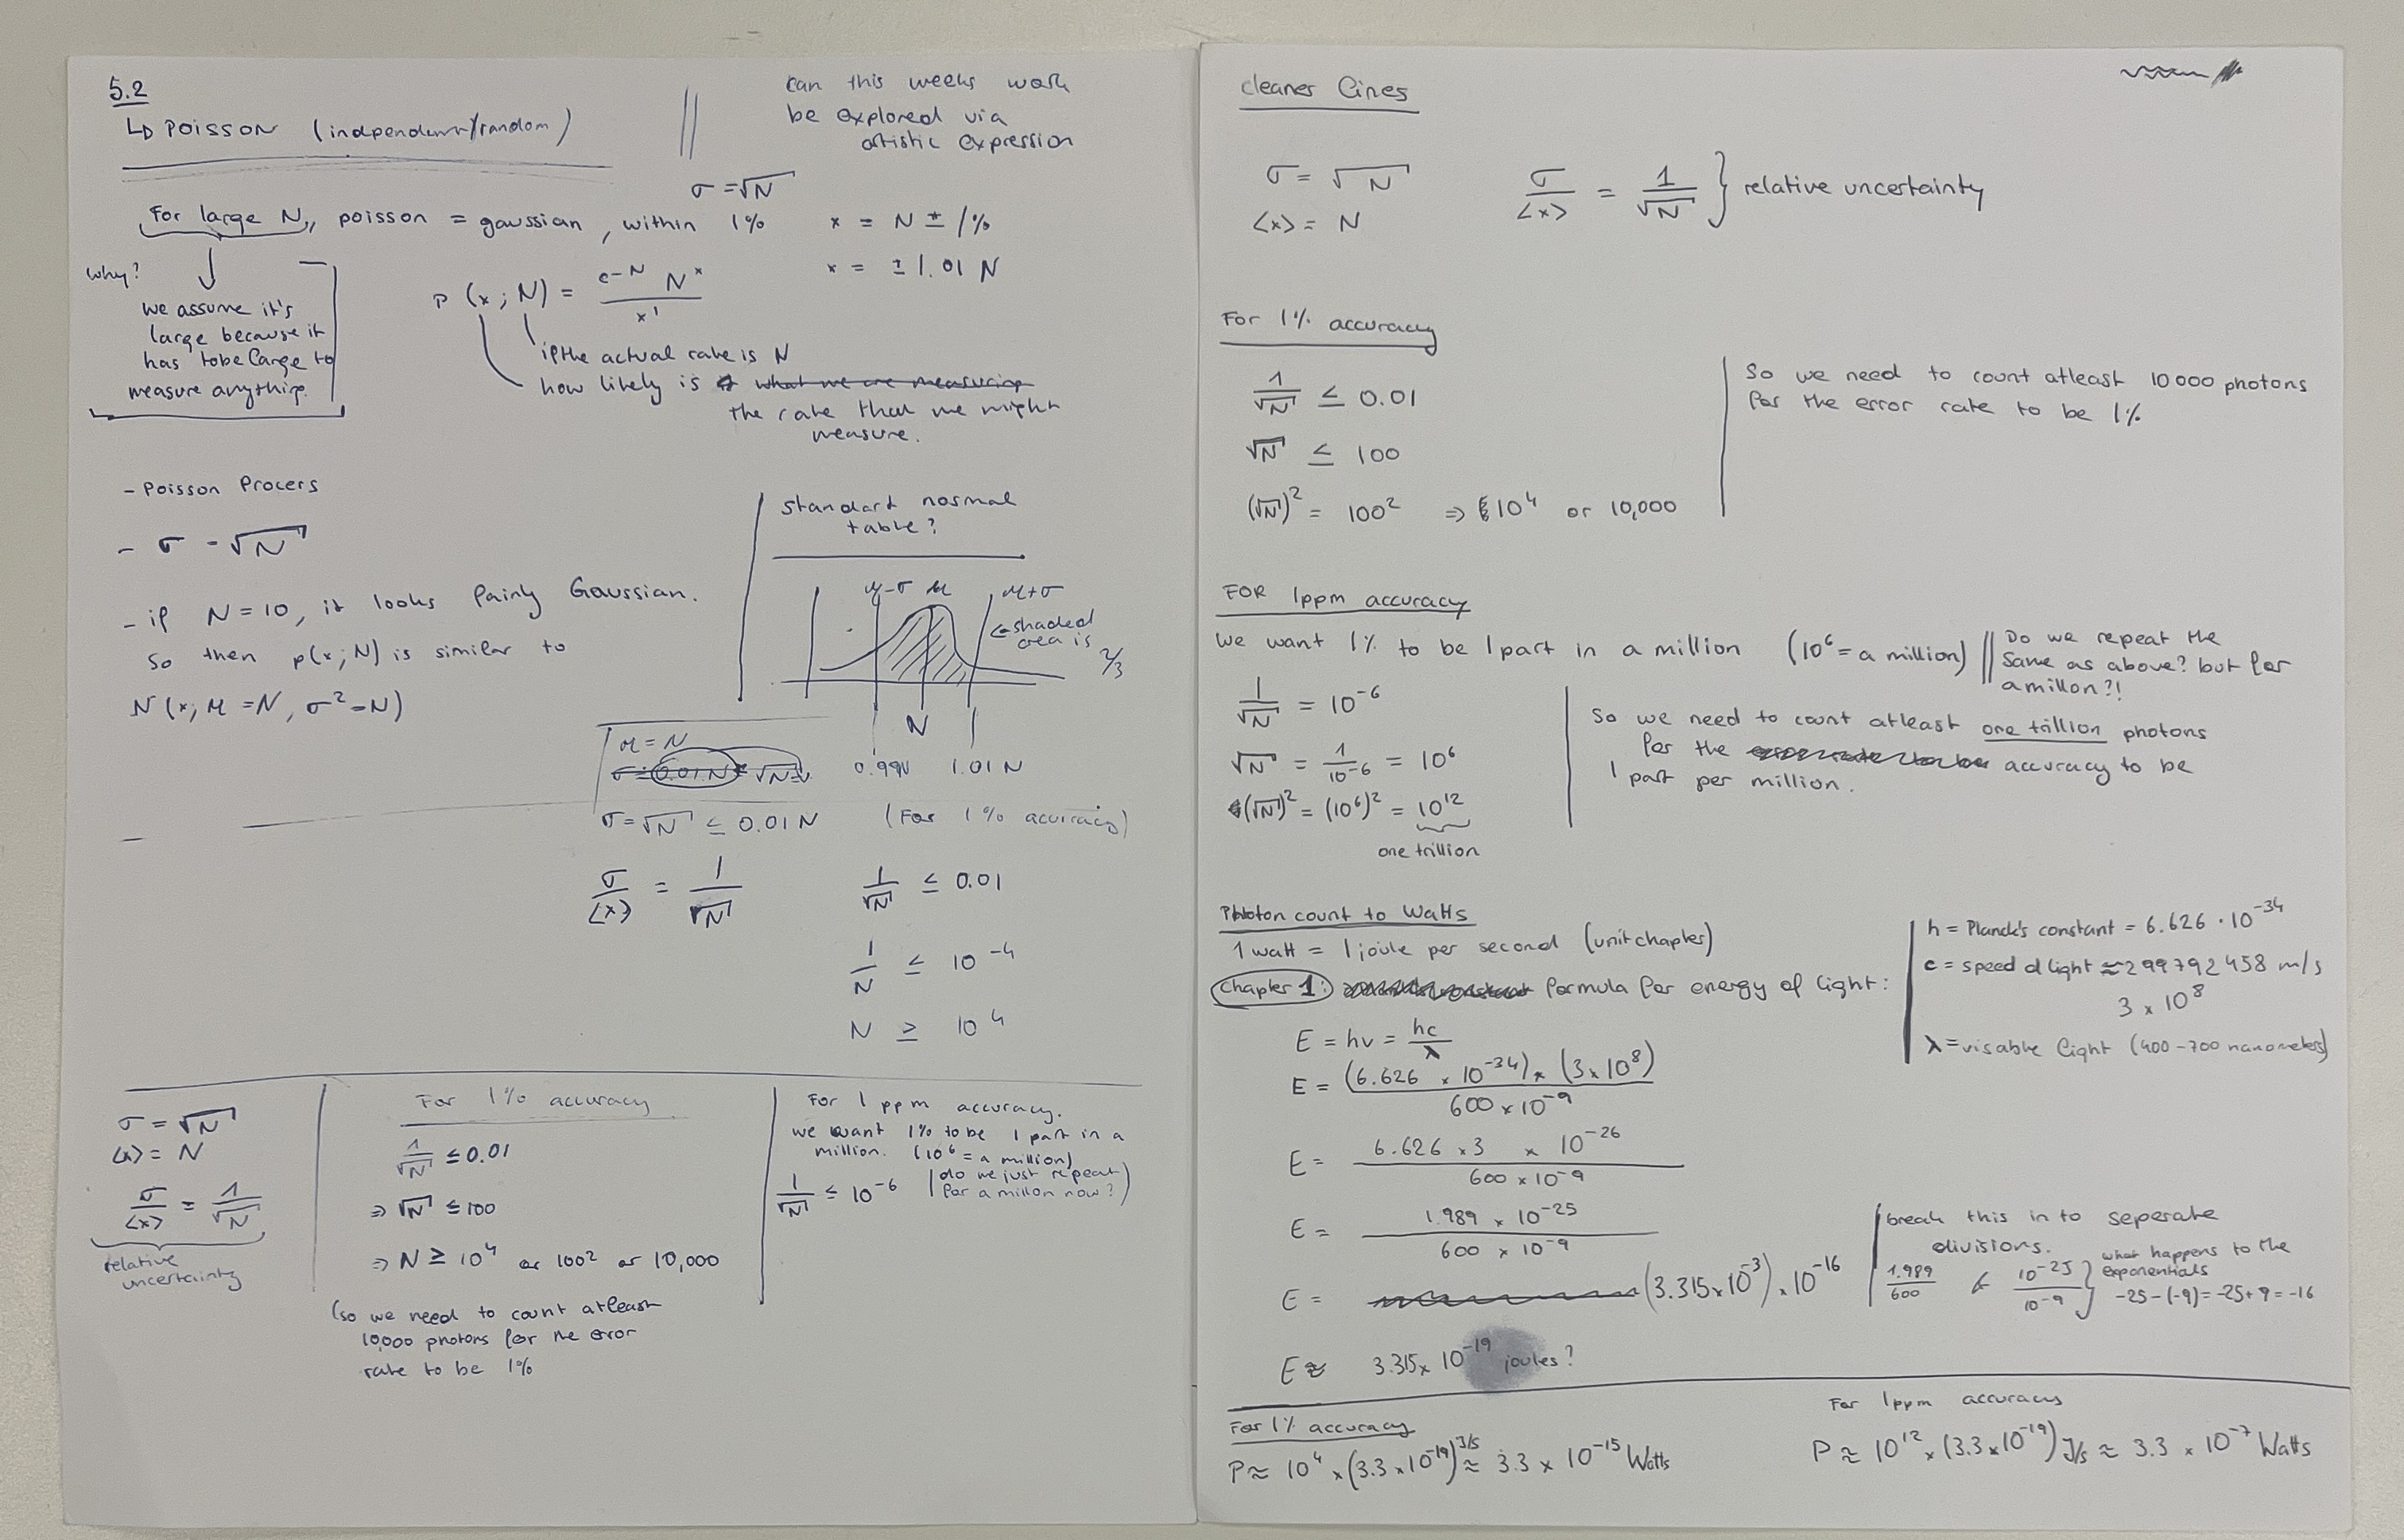 5.2
↳ POISSON (independent/random)
can this weeks work
be explored via
artistic expression
σ = √N
For large N,, poisson = gaussian, within 1%
x = N ± 1%
x = ± 1.01 N
why?
we assume it's
large because it
has to be large to
measure anything.
P (x ; N) = e^-N N^x / x!
if the actual rate is N
how likely is
the rate that we might
measure.
- Poisson Process
- σ = √N
- if N = 10, it looks fairly Gaussian.
So then p(x; N) is similar to
N (x, μ = N, σ² = N)
Standart normal
table?
μ-σ μ μ+σ
← shaded
area is 2/3
N
μ = N
0.99N 1.01 N
σ = √N ≤ 0.01 N (For 1% accuracy)
σ/⟨x⟩ = 1/√N
1/√N ≤ 0.01
1/N ≤ 10^-4
N ≥ 10^4
σ = √N
⟨x⟩ = N
σ/⟨x⟩ = 1/√N
relative
uncertainty
For 1% accuracy
1/√N ≤ 0.01
⇒ √N ≤ 100
⇒ N ≥ 10^4 or 100² or 10,000
(so we need to count atleast
10,000 photons for the error
rate to be 1%
For 1 ppm accuracy.
we want 1% to be 1 part in a
million. (10^6 = a million)
1/√N ≤ 10^-6
(do we just repeat
for a millon now?)
cleaner lines
σ = √N
⟨x⟩ = N
σ/⟨x⟩ = 1/√N } relative uncertainty
For 1% accuracy
1/√N ≤ 0.01
√N ≤ 100
(√N)² = 100² ⇒ 10^4 or 10,000
So we need to count atleast 10000 photons
for the error rate to be 1%
FOR 1ppm accuracy
We want 1% to be 1 part in a million (10^6 = a million)
Do we repeat the
same as above? but for
a millon?!
1/√N = 10^-6
√N = 1/10^-6 = 10^6
(√N)² = (10^6)² = 10^12
one trillion
So we need to count atleast one trillion photons
for the accuracy to be
1 part per million.
Photon count to Watts
1 watt = 1 joule per second (unit chapter)
Chapter 1: formula for energy of light:
h = Planck's constant = 6.626 · 10^-34
c = speed of light ≈ 299792458 m/s
3 × 10^8
λ = visable light (400 - 700 nanometers)
E = hν = hc/λ
E = (6.626 × 10^-34) × (3 × 10^8) / 600 × 10^-9
E = 6.626 × 3 × 10^-26 / 600 × 10^-9
E = 1.989 × 10^-25 / 600 × 10^-9
E = (3.315 × 10^-3) × 10^-16
break this in to seperate
divisions.
1.989/600 & 10^-25/10^-9 }
what happens to the
exponentials
-25 - (-9) = -25 + 9 = -16
E ≈ 3.315 × 10^-19 joules?
For 1% accuracy
P ≈ 10^4 × (3.3 × 10^-19) J/s ≈ 3.3 × 10^-15 Watts
For 1ppm accuracy
P ≈ 10^12 × (3.3 × 10^-19) J/s ≈ 3.3 × 10^-7 Watts